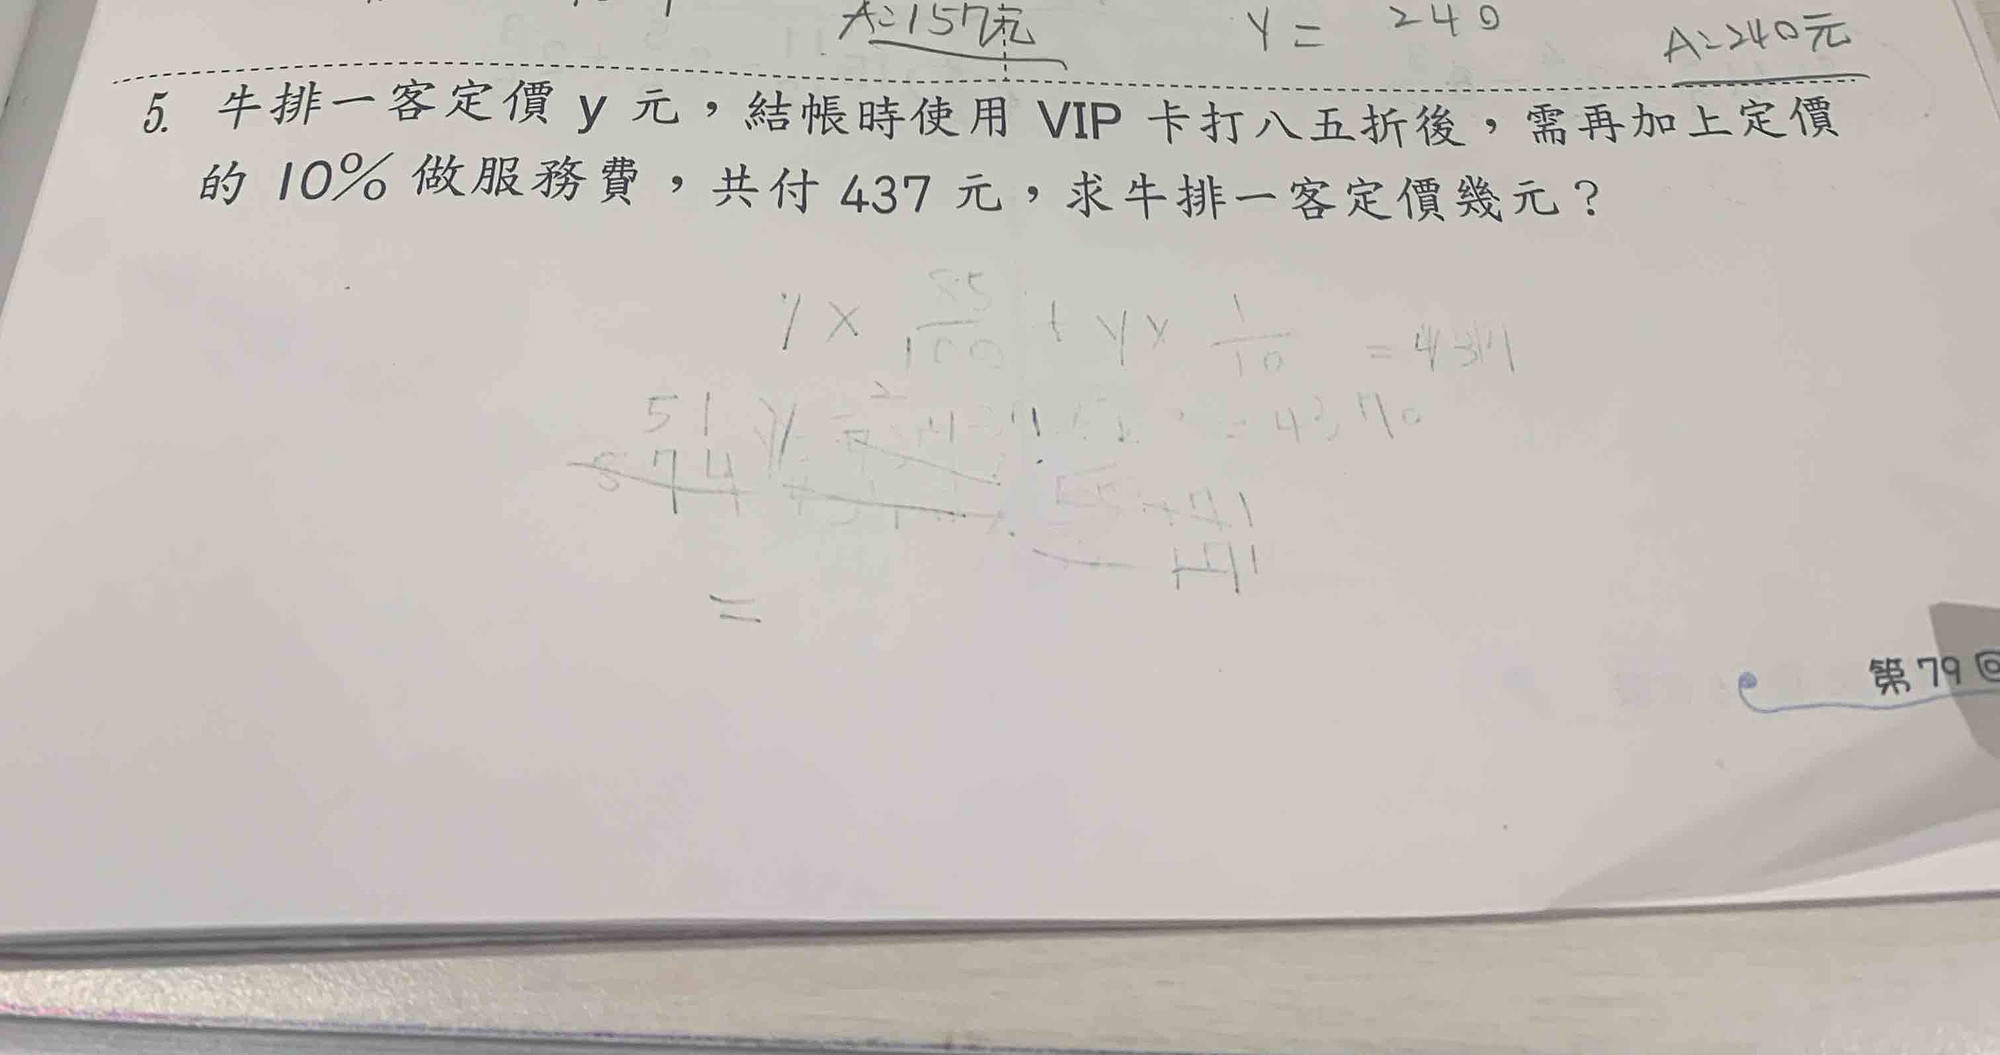 A=157元 y = 240 A=240元
5. 牛排一客定價 y 元，結帳時使用 VIP 卡打八五折後，需再加上定價
的 10% 做服務費，共付 437 元，求牛排一客定價幾元？
y × 85/100 + y × 1/10 = 437
51 y
574
=
第 79 回